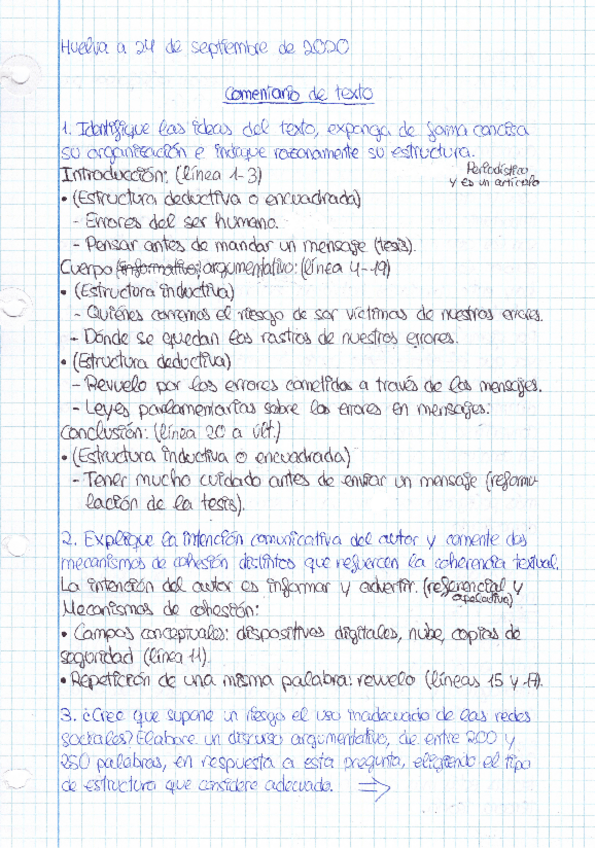 Huelva a 24 de septiembre de 2020
Comentario de texto
1. Identifique las ideas del texto, exponga de forma concisa
su organización e indique razonamente su estructura.
Introducción: (línea 1-3)
Periodístico
y es un artículo
• (Estructura deductiva o encuadrada)
- Errores del ser humano.
- Pensar antes de mandar un mensaje (tesis).
Cuerpo (informativo) argumentativo: (línea 4-19)
• (Estructura inductiva)
- Quiénes corremos el riesgo de ser víctimas de nuestros errores.
- Dónde se quedan los rastros de nuestros errores.
• (Estructura deductiva)
- Revuelo por los errores cometidos a través de los mensajes.
- Leyes parlamentarias sobre los errores en mensajes.
Conclusión: (línea 20 a últ.)
• (Estructura inductiva o encuadrada)
- Tener mucho cuidado antes de enviar un mensaje (reformu-
lación de la tesis).
2. Explique la intención comunicativa del autor y comente dos
mecanismos de cohesión distintos que refuercen la coherencia textual.
La intención del autor es informar y advertir. (referencial y
apelativa)
Mecanismos de cohesión:
• Campos conceptuales: dispositivos digitales, nube, copias de
seguridad (línea 11).
• Repetición de una misma palabra: revuelo (líneas 15 y 17).
3. ¿Cree que supone un riesgo el uso inadecuado de las redes
sociales? Elabore un discurso argumentativo, de entre 200 y
250 palabras, en respuesta a esta pregunta, eligiendo el tipo
de estructura que considere adecuado. ⇒